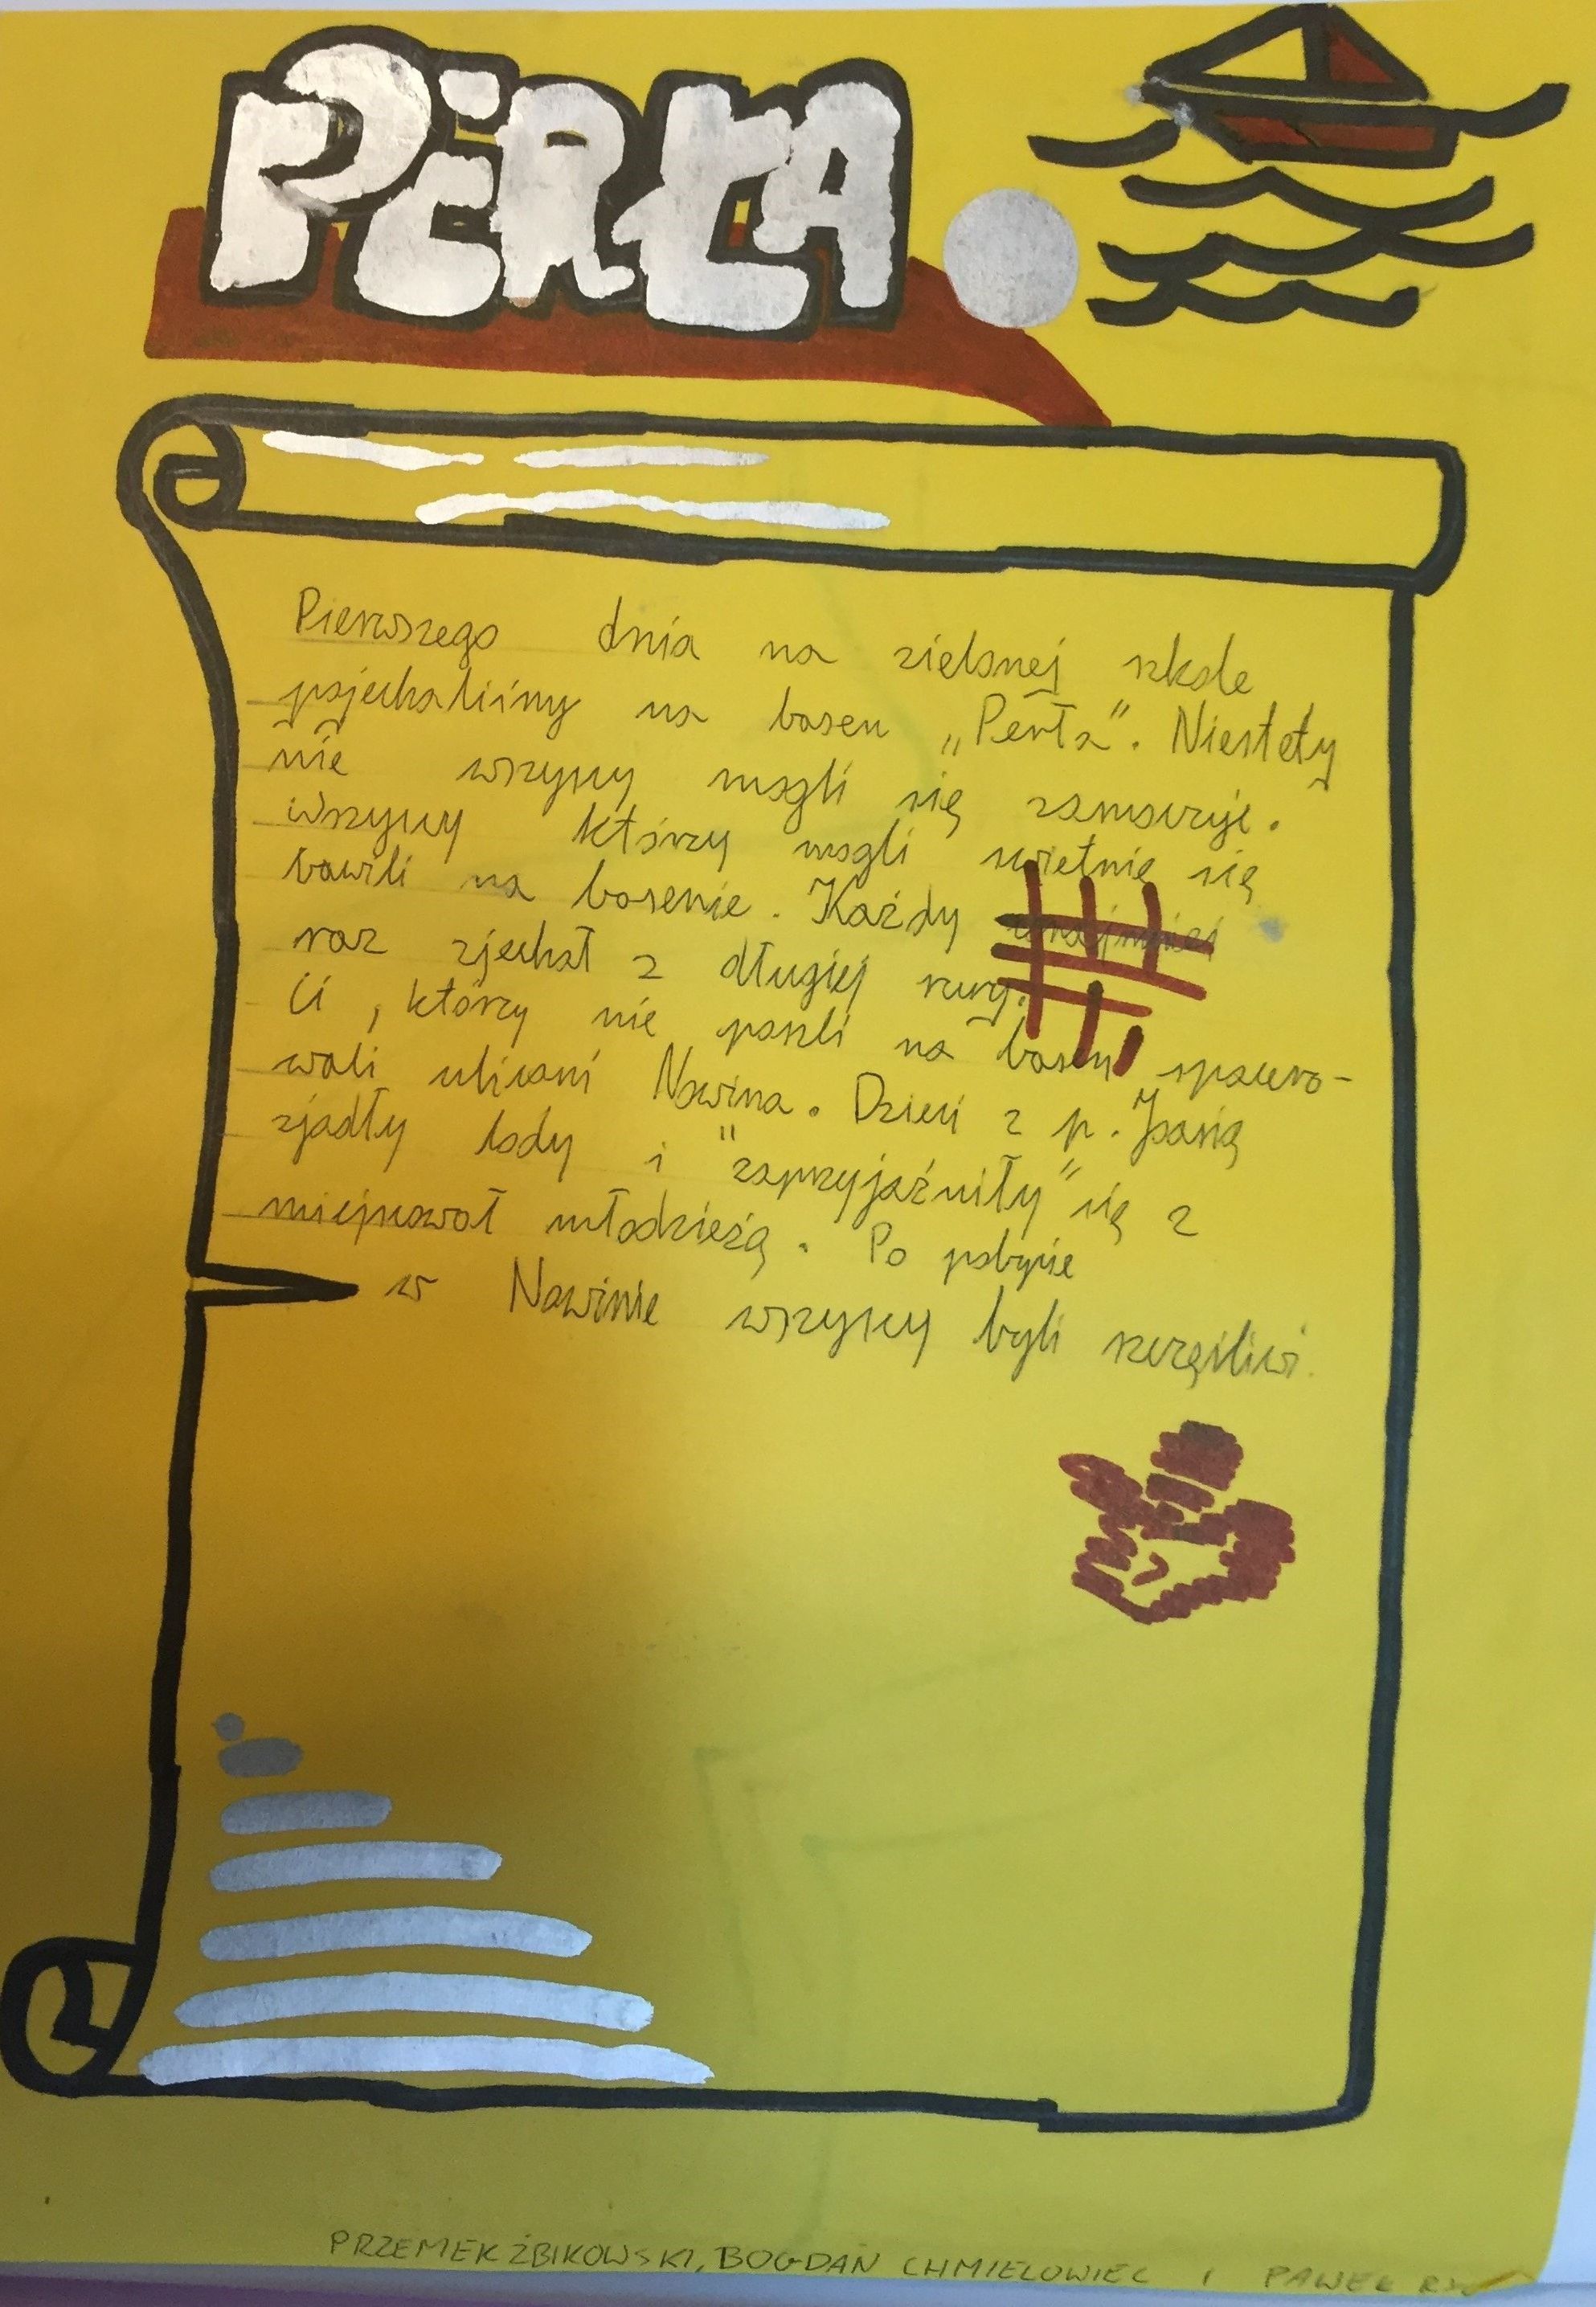 PERŁA
Pierwszego dnia na zielonej szkole
pojechaliśmy na basen „Perła”. Niestety
nie wszyscy mogli się
Wszyscy którzy mogli świetnie się
bawili na basenie. Każdy
raz zjechał z długiej rury.
Ci, którzy nie poszli na basen spacero-
wali ulicami Nowina. Dzieci z p. Joasią
zjadły lody i "zaprzyjaźniły" się z
młodzieżą. Po pobycie
w Nowinie wszyscy byli szczęśliwi.
PRZEMEK ŻBIKOWSKI, BOGDAN CHMIELOWIEC I PAWEŁ